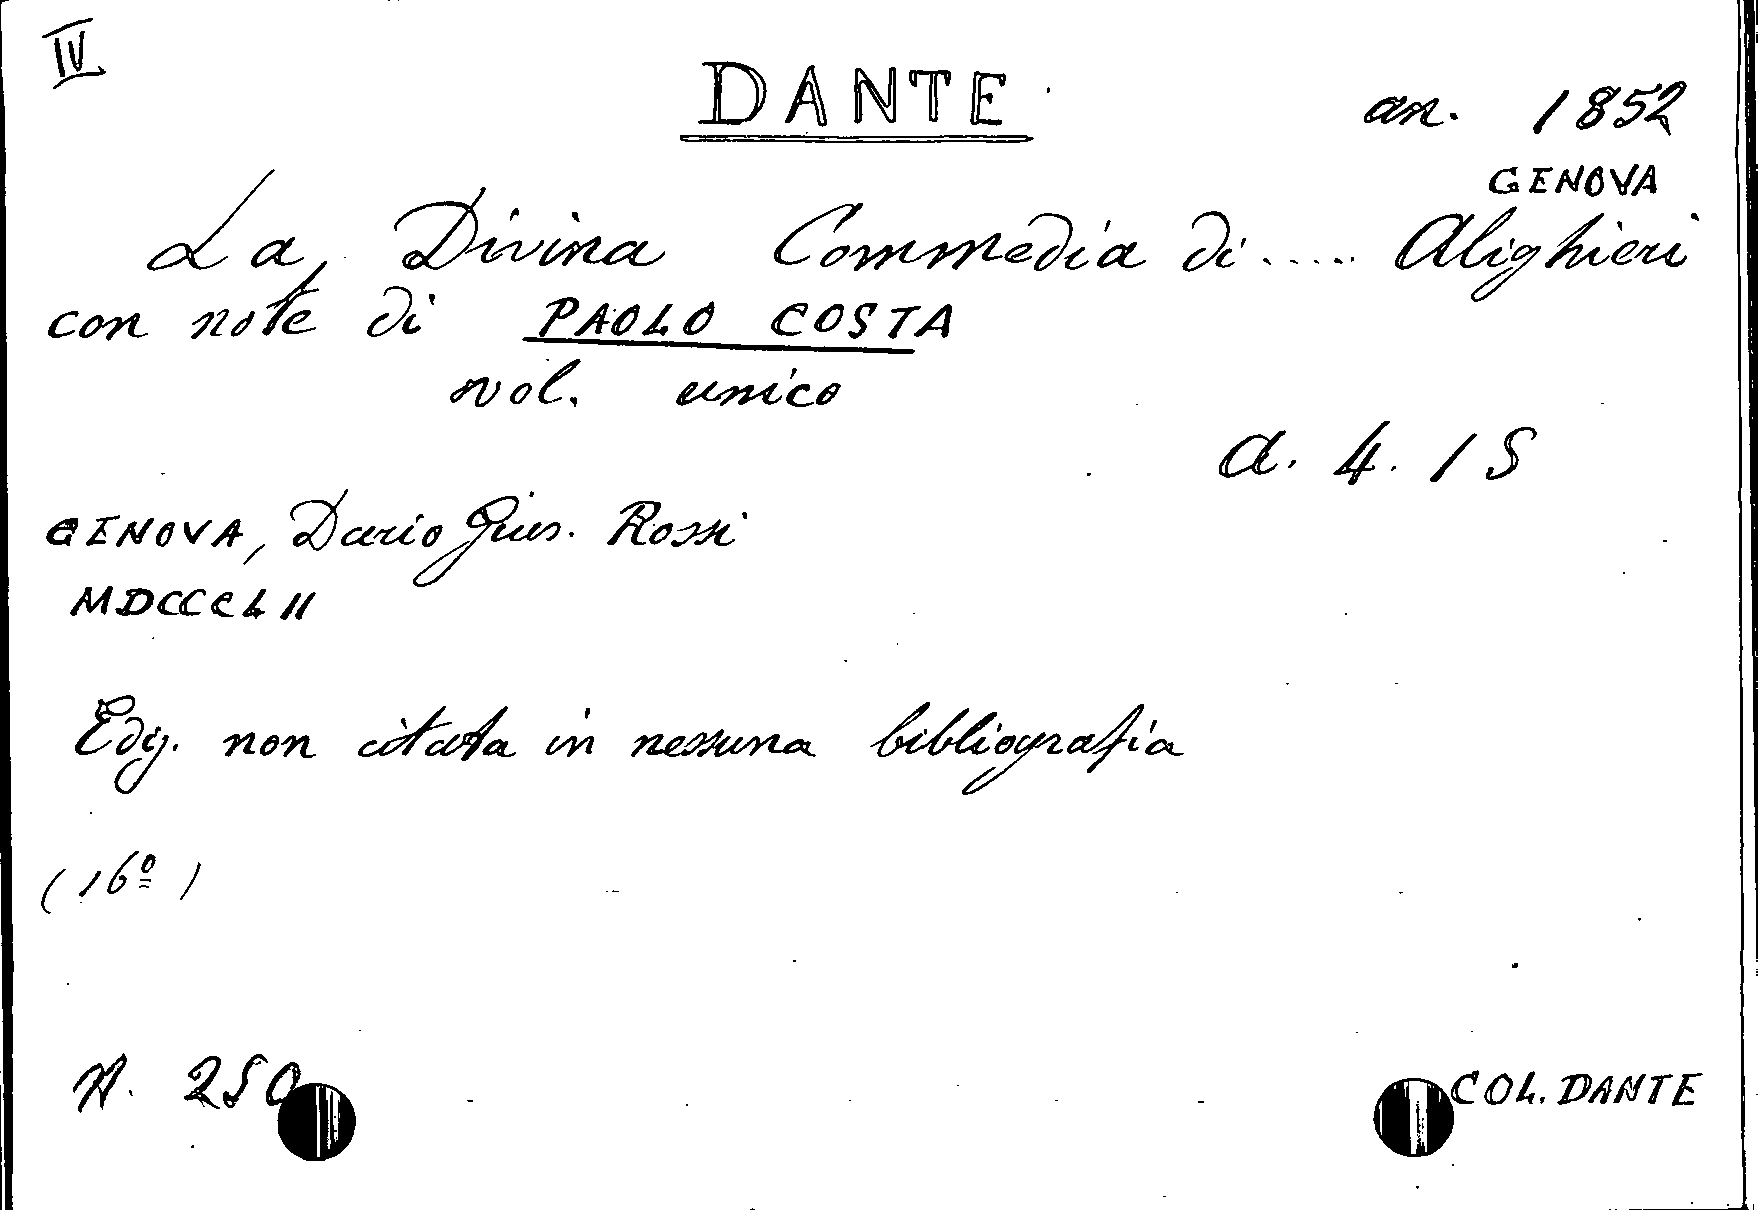 IV
DANTE
an. 1852
GENOVA
La Divina Commedia di ..... Alighieri
con note di PAOLO COSTA
vol. unico
a. 4. 15
GENOVA, Dario Gius. Rossi
MDCCCLII
Ediz. non citata in nessuna bibliografia
(16º)
N. 250
COL. DANTE